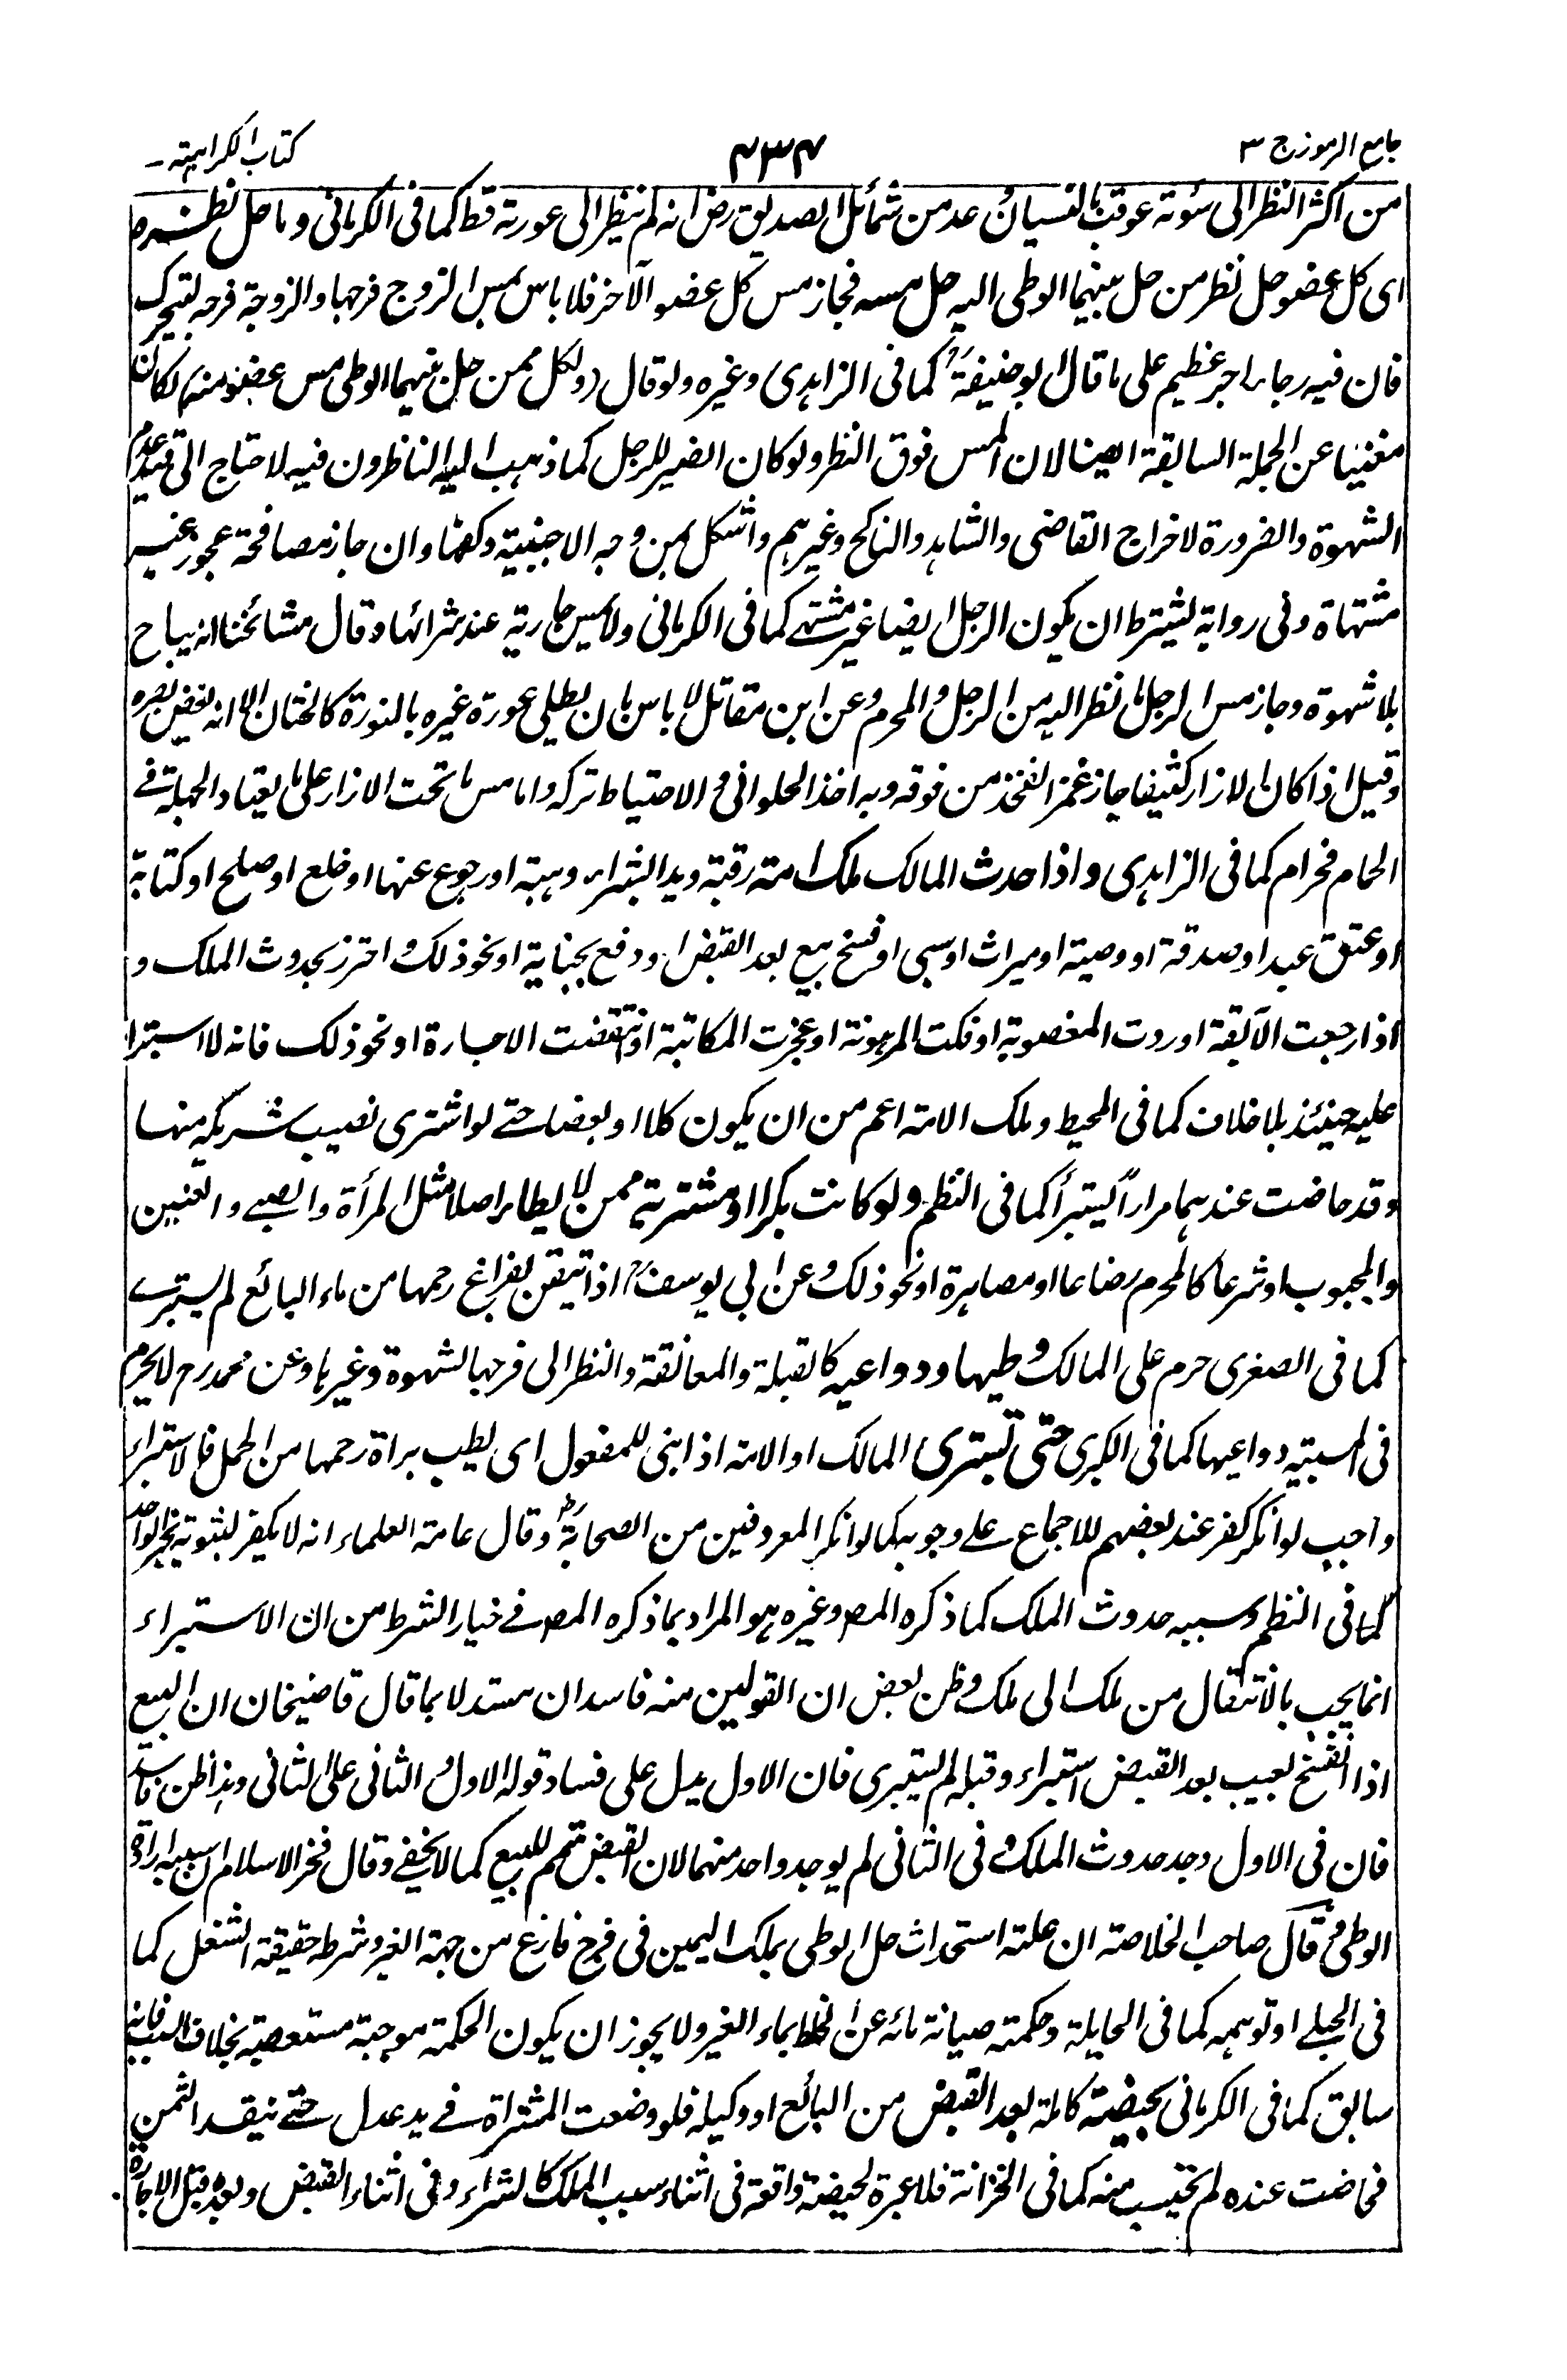 جامع الرموز ج ٣
٤٣٤
كتاب الكراهية ـ
من اكثر النظر الى سوئته عوقب بالنسيان وعد من شمائل الصديق رض انه لم ينظر الى عورته قط كما فى الكرمانى وما حل نظره
اى كل عضو حل نظر من حل بينهما الوطى اليه حل مسه فجاز مس كل عضو الآخر فلا باس بمس الزوج فرجها والزوجة فرجه ليتحرك
فان فيه رجاء اجر عظيم على ما قال ابو حنيفة رح كما فى الزاهدى وغيره ولو قال (ولكل ممن حل بينهما الوطى مس عضو منه) لكان
مغنيا عن الجملة السابقة ايضا لان المس فوق النظر ولو كان الضمير للرجل كما ذهب اليه الناظرون فيه لاحتاج الى قيد عدم
الشهوة والضرورة لاخراج القاضى والشاهد والناكح وغيرهم واشكل بمن وجه الاجنبية وكفها وان جاز مصافحة عجوز غير
مشتهاة وفى رواية يشترط ان يكون الرجل ايضا غير مشتهى كما فى الكرمانى ولا يمس جارية عند شرائها وقال مشائخنا انه يباح
بلا شهوة وجاز مس الرجل ما نظر اليه من الرجل والمحرم وعن ابن مقاتل لا باس بان يطلى عورة غيره بالنورة كالختان الا انه يغض بصره
وقيل اذا كان الازار كثيفا جاز غمز الفخذ من فوقه وبه اخذ الحلوانى والاحتياط تركه واما مس ما تحت الازار على ما يعتاد الجهلة فى
الحمام فحرام كما فى الزاهدى واذا حدث المالك ملك امته رقبة ويدا لشراء وهبة او رجوع عنها او خلع او صلح او كتابة
او عتق عبد او صدقة او وصية او ميراث او سبى او فسخ بيع بعد القبض او دفع بجناية او نحو ذلك واحترز بحدوث الملك و
اذا رجعت الآبقة او ردت المغصوبة او فكت المرهونة او عجزت المكاتبة او انتقضت الاجارة او نحو ذلك فانه لا استبراء
عليه حينئذ بلا خلاف كما فى المحيط وملك الامة اعم من ان يكون كلا او بعضا حتى لو اشترى نصيب شريكه منها
وقد حاضت عندهما مرارا يستبرأ كما فى النظم ولو كانت بكرا او مشترية ممن لا يطأ اصلا مثل المرأة والصبى والعنين
والمجبوب او شرعا كالمحرم رضاعا او مصاهرة او نحو ذلك وعن ابى يوسف رح اذا تيقن بفراغ رحمها من ماء البائع لم يستبرء
كما فى الصغرى حرم على المالك وطيها ودواعيه كالقبلة والمعانقة والنظر الى فرجها لشهوة وغيرها وعن محمد رح لا يحرم
فى المسبية دواعيها كما فى الكبرى حتى تستبرى المالك او الامة اذا بنى للمفعول اى يطلب براءة رحمها من الحمل فالاستبراء
واجب لو انكر كفر عند بعضهم للاجماع على وجوبه كما لو انكر المعروفين من الصحابة رض وقال عامة العلماء انه لا يكفر لثبوته بخبر الواحد
كما فى النظم وسببه حدوث الملك كما ذكره المص وغيره هو المراد بما ذكره المص فى خيار الشرط من ان الاستبراء
انما يجب بالانتقال من ملك الى ملك وظن بعض ان القولين منه فاسدان مستدلا بما قال قاضيخان ان البيع
اذا انفسخ بعيب بعد القبض استبراء وقبله لم يستبرى فان الاول يدل على فساد قوله الاول والثانى على الثانى وهذا ظن فاسد
فان فى الاول وجد حدوث الملك وفى الثانى لم يوجد واحد منهما لان القبض متمم للبيع كما لا يخفى وقال فخر الاسلام ان سببه ارادة
الوطى وقال صاحب الخلاصة ان علته استحداث حل الوطى بملك اليمين فى فرج فارغ من جهة الغير وشرطه حقيقة الشغل كما
فى الحبلى او توهمه كما فى الحايلة وحكمته صيانة مائه عن الخلط بماء الغير ولا يجوز ان يكون الحكمة موجبة بخلاف السبب فانه
سابق كما فى الكرمانى بحيضة كاملة بعد القبض من البائع او وكيله فلو وضعت المشتراة فى يد عدل حتى ينقد الثمن
فحاضت عنده لم تحتسب منه كما فى الخزانة فلا عبرة لحيضة واقعة فى اثناء سبب الملك كالشراء وفى اثناء القبض وبعده قبل الاجازة